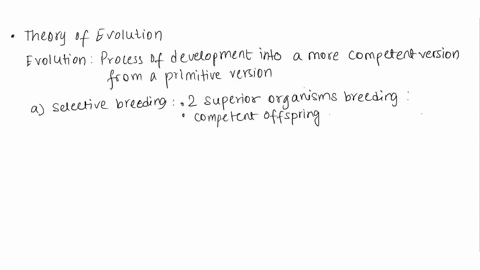 • Theory of Evolution
Evolution : Process of development into a more competent version
from a primitive version
a) selective breeding : • 2 superior organisms breeding :
• competent offspring